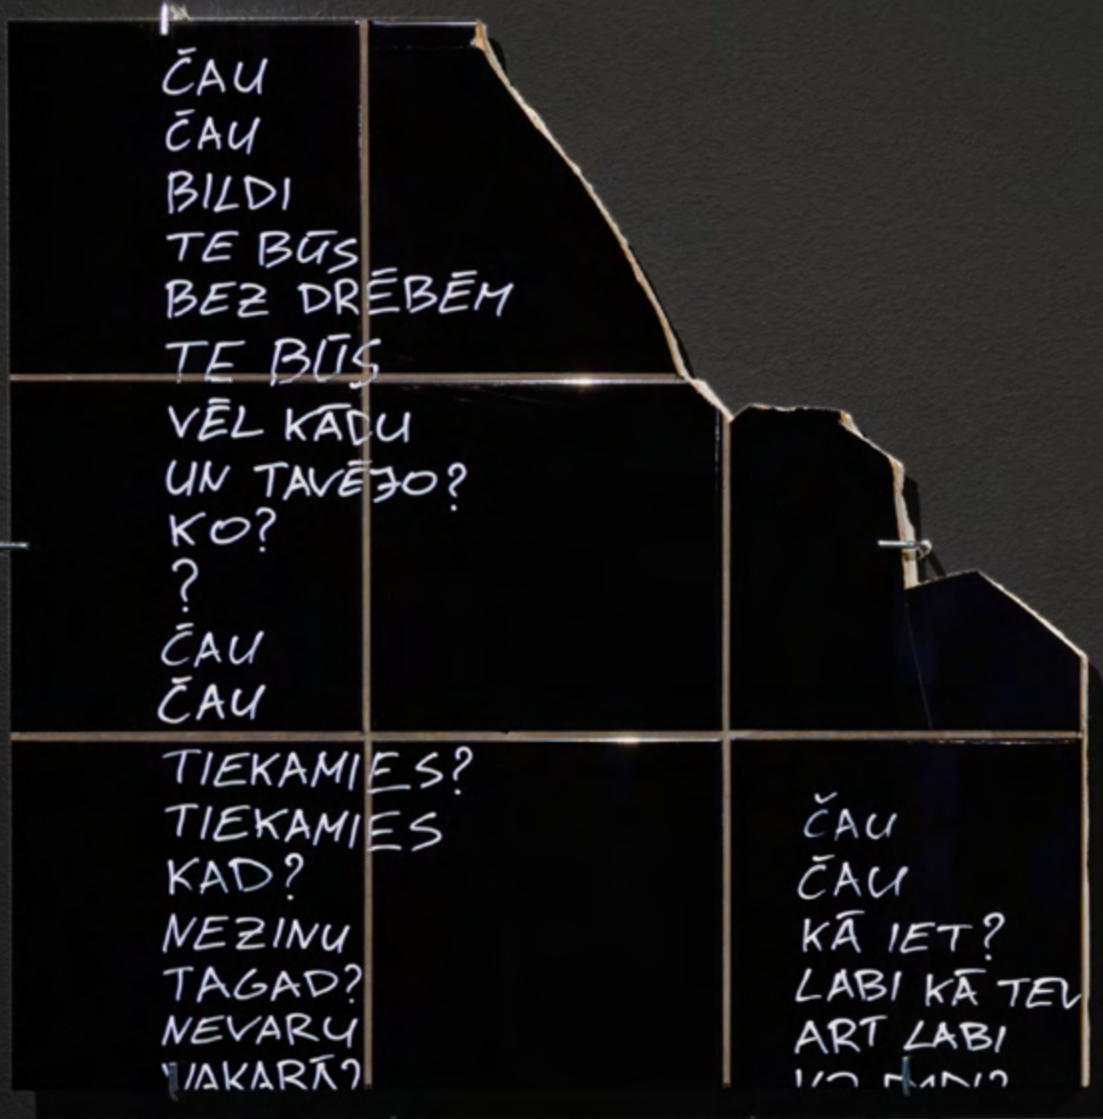 ČAU
ČAU
BILDI
TE BŪS
BEZ DRĒBĒM
TE BŪS
VĒL KĀDU
UN TAVĒJO?
KO?
?
ČAU
ČAU
TIEKAMIES?
TIEKAMIES
KAD?
NEZINU
TAGAD?
NEVARU
VAKARĀ?
ČAU
ČAU
KĀ IET?
LABI KĀ TEV
ARĪ LABI